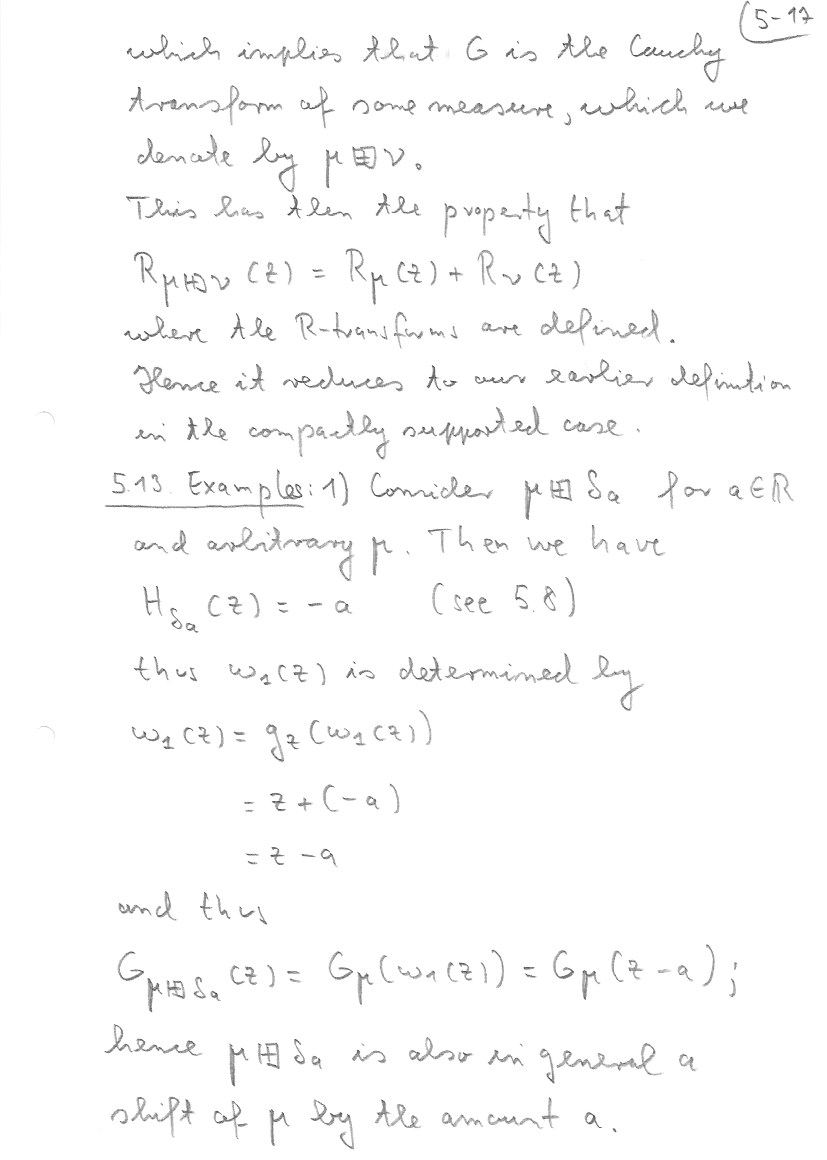 5-17
which implies that G is the Cauchy
transform of some measure, which we
denote by μ ⊞ ν.
This has then the property that
R_{μ⊞ν}(z) = R_μ(z) + R_ν(z)
where the R-transforms are defined.
Hence it reduces to our earlier definition
in the compactly supported case.
5.13. Examples: 1) Consider μ ⊞ δ_a for a ∈ ℝ
and arbitrary μ. Then we have
H_{δ_a}(z) = -a (see 5.8)
thus ω_1(z) is determined by
ω_1(z) = g_z(ω_1(z))
= z + (-a)
= z - a
and thus
G_{μ⊞δ_a}(z) = G_μ(ω_1(z)) = G_μ(z - a);
hence μ ⊞ δ_a is also in general a
shift of μ by the amount a.